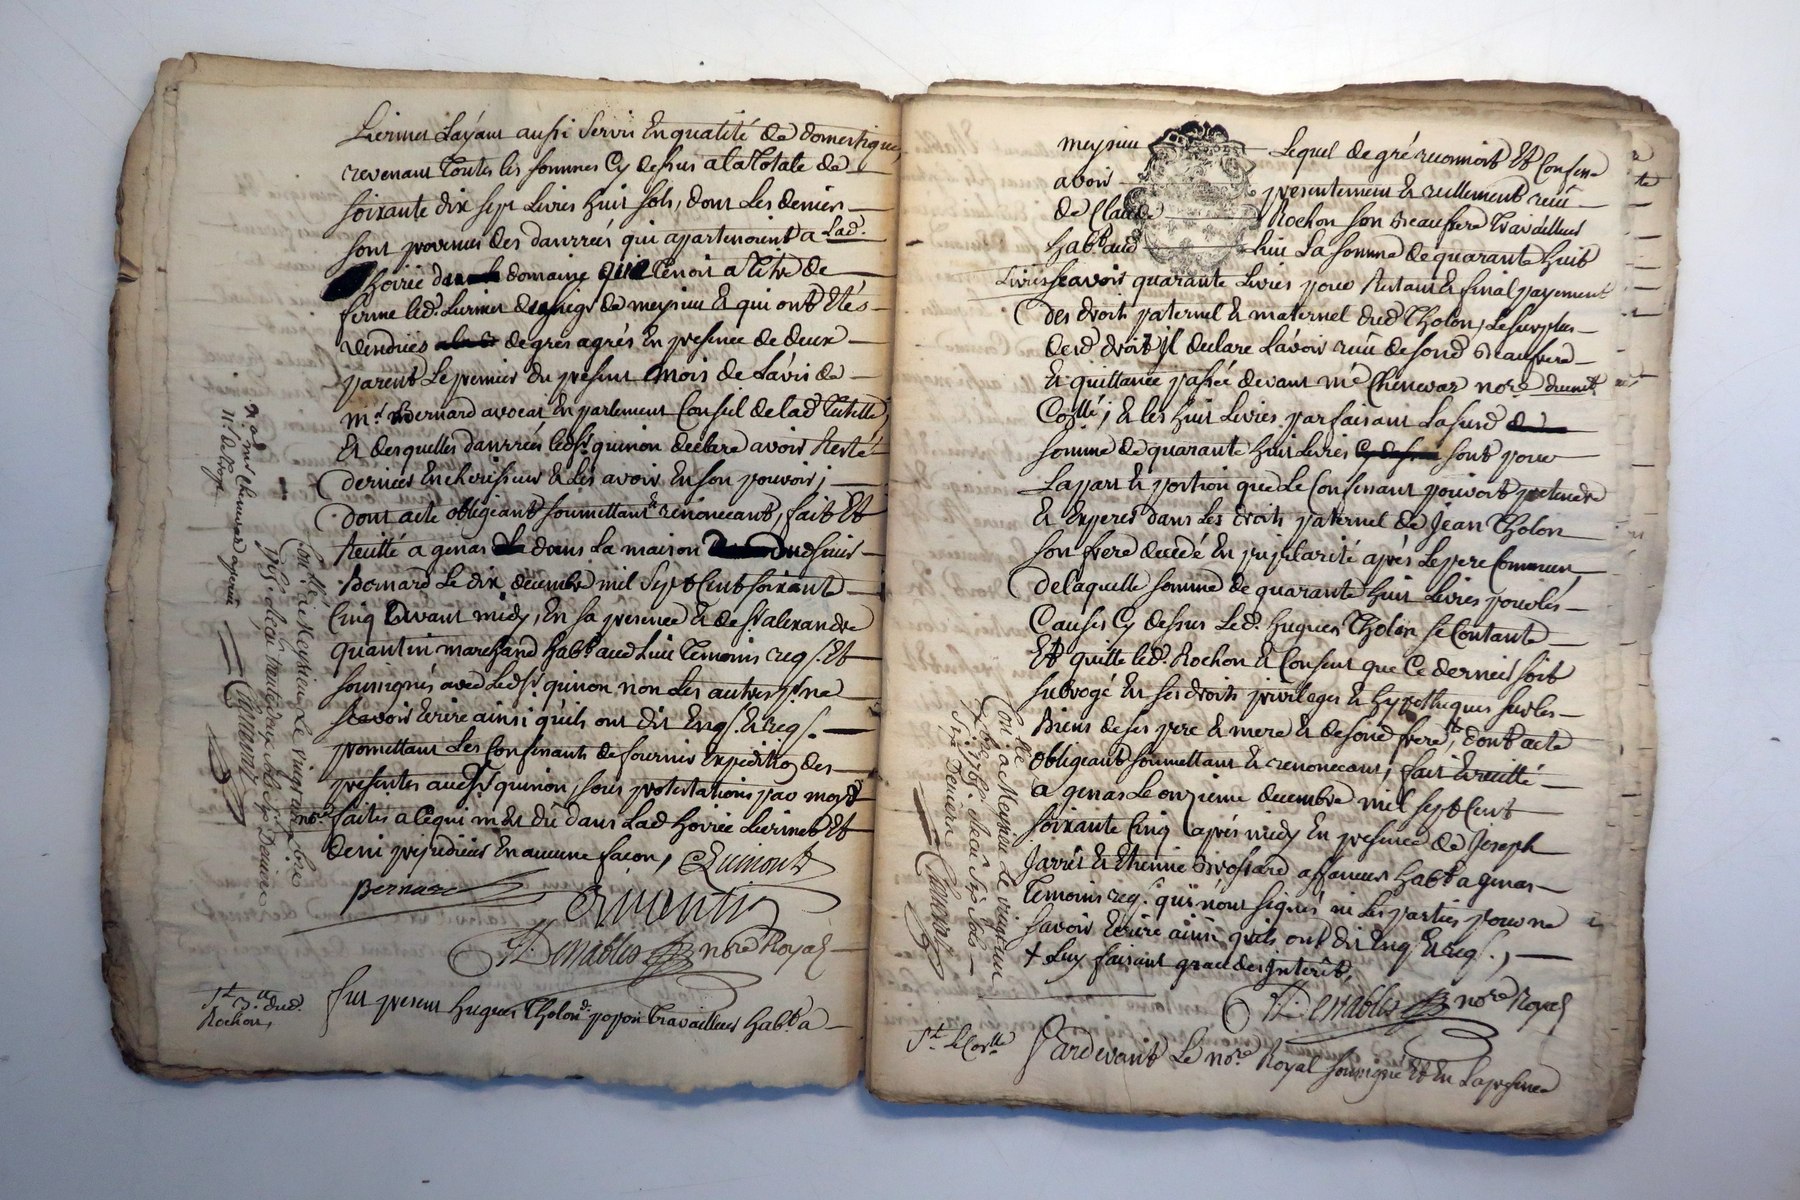 Lurinet Layant aussi servi En qualité de domestique,
revenant Toutes les sommes Cy dessus a la Totale de
soixante dix sept Livres huit sols, dont Les deniers
sont provenus des danrrées qui apartenoient a Lad.
hoirie domaine que Tenoit a Titre de
ferme led. Lurinet de meysieu & qui ont Etés
vendües de gres agrés En presence de deux
parents Le premier du present mois de L'avis de
Mr. Bernard avocat En parlement Conseil de lad Tutelle,
Et desquelles danrrées led sr. quinon declare avoir Resté
dernier Encherisseur & Les avoir En son pouvoir;
dont acte obligeant soumettant & renonceant, fait Et
Recitté a genas dans La maison dud sieur
Bernard Le dix decembre mil sept Cent soixante
Cinq avant midy, En sa presence & de sr alexandre
quantin marchand habt. aud Lieu Temoins req. s. Et
soussignés avec Led sr. quinon, non Les autres p. ne
scavoir Ecrire ainsi qu'ils ont dit Enq. s. & req. s.
promettant Les Consinants de fournir Expeditio des
presentes aud sr quinon, sous protestations par moyd
nore. faites a Ce qui m'est dû dans Lad hoirie Lurinet Et
de ni prejudicier En aucune facon, Quinon
Bernard
Quantin
Desnables nore Royal
St. 3. tt. dud.
Rochon,
fut present hugues Tholon popon Travailleur habt. a
Contllé. a Meysieu Le vingt un Xbre
1765. Reçu
meysieu Lequel de gré reconnoit Et Confesse
avoir presentement & reellement reçu
de Claude Rochon son Beaufrere Travailleur
habt. aud Lieu La somme de quarante huit
Livres scavoir quarante Livres pour Restant & final payement
des droits paternel & maternel dud Tholon, Le surplus
desd droits il declare L'avoir reçu de sond Beaufrere
& quittance passée devant me Chenevas nore. duement
Contllé; & les huit Livres parfaisant La susd
somme de quarante huit Livres sont pour
La part & portion que Le Confessant pouvoit pretendre
& Esperer dans Les droits paternel de Jean Tholon
son frere decedé En pupilarité après Le pere Commun,
de laquelle somme de quarante huit Livres pour les
Causes Cy dessus Led. hugues Tholon se Contante
Et quitte led. Rochon & Consent que Ce dernier soit
subrogé En ses droits privileges & hypotheques sur les
Biens de ses pere & mere & de sond frere, dont acte
obligeant soumettant & renonceant, fait & recitté
a genas Le onzieme decembre mil sept Cent
soixante Cinq après midy En presence de Joseph
Jarrés & Etienne Brossard affaneurs habt. a genas
Temoins req. s. qui n'ont signés ni Les parties pour ne
savoir Ecrire ainsi qu'ils ont dit Enq & req. s.,
+ Luy faisant grace des Interêt,
Desnables nore Royal
Contllé. a Meysieu Le vingt un
Xbre 1765. Reçu six sols
six Deniers
St. Le Contlle
Pardevant Le nore. Royal soussigné Et En La presence